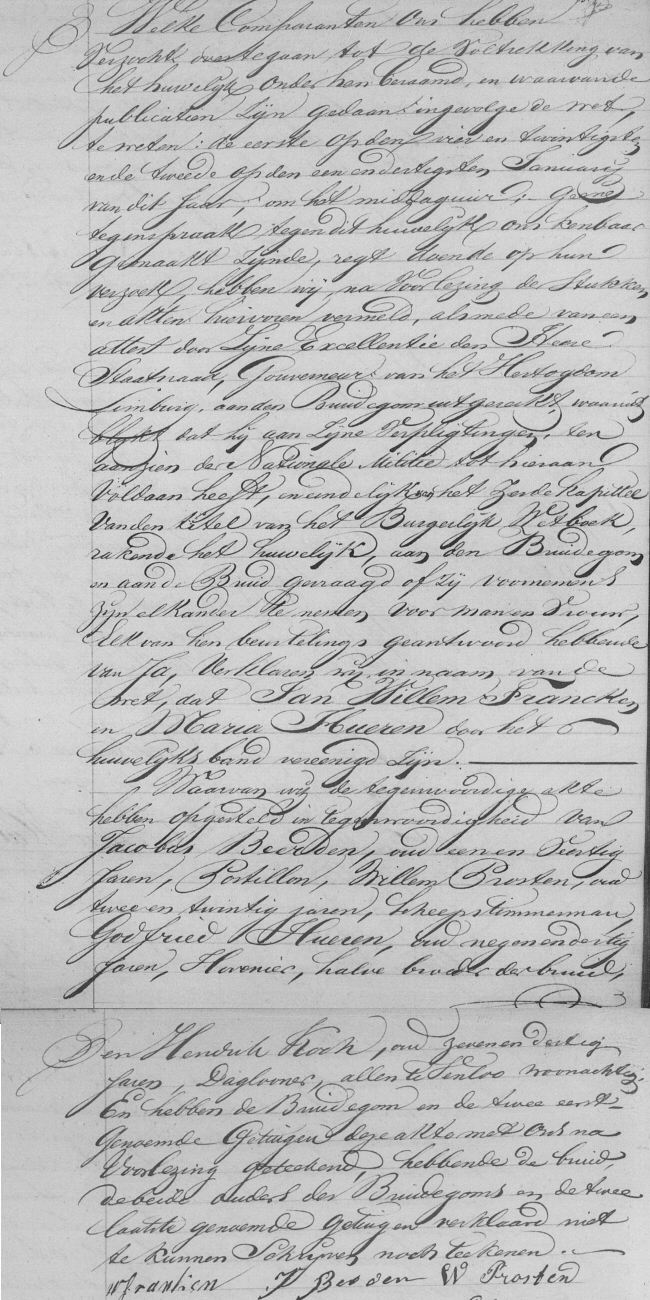 Welke Comparanten Ons hebben
verzocht overtegaan tot de Voltrekking van
het huwelijk onder hen beraamd, en waarvan de
publicatien Zijn gedaan ingevolge de wet,
te weten: de eerste op den vier en twintigsten
ende tweede op den een en dertigsten January
van dit Jaar, om het middaguur; Geene
tegenspraak tegen dit huwelijk ons kenbaar
Gemaakt Zijnde, regt doende op hun
verzoek, hebben wij, na Voorlezing de Stukken
en akten hiervoren vermeld, alsmede van een
attest door Zijne Excellentie den Heere
Staatsraad, Gouverneur van het Hertogdom
Limburg, aan den Bruidegom uitgereikt, waaruit
blykt dat hij aan Zijne Verpligtingen, ten
aanzien der Nationale Militie tot hieraan
Voldaan heeft, en eindelijk van het Zesde kapittel
Van den titel van het Burgerlijk Wetboek,
rakende het huwelijk, aan den Bruidegom
en aan de Bruid gevraagd of Zij voornemens
Zijn elkander te nemen voor man en Vrouw,
Elk van hen beurtelings geantwoord hebbende
van Ja, Verklaren wij in naam van de
wet, dat Jan Willem Francken
en Maria Hueren door het
huwelijksband vereenigd Zijn.
Waarvan wij de tegenwoordige akte
hebben opgesteld in tegenwoordigheid van
Jacobus Beerden, oud een en Veertig
Jaren, Postillon, Willem Prosten, oud
twee en twintig jaren, Scheepstimmerman,
Godfried Hueren, oud negenendertig
Jaren, Hovenier, halve broeder der bruid,
Den Hendrik Kock, oud zevenendertig
Jaren, Daglooner, allen te Venloo woonachtig;
En hebben de Bruidegom en de twee eerst-
Genoemde Getuigen deze akte met Ons na
Voorlezing geteekend, hebbende de bruid,
de beide ouders des Bruidegoms en de twee
laatste genoemde getuigen verklaard niet
te kunnen Schrijven noch teekenen.
W Franken J Beerden W Prosten